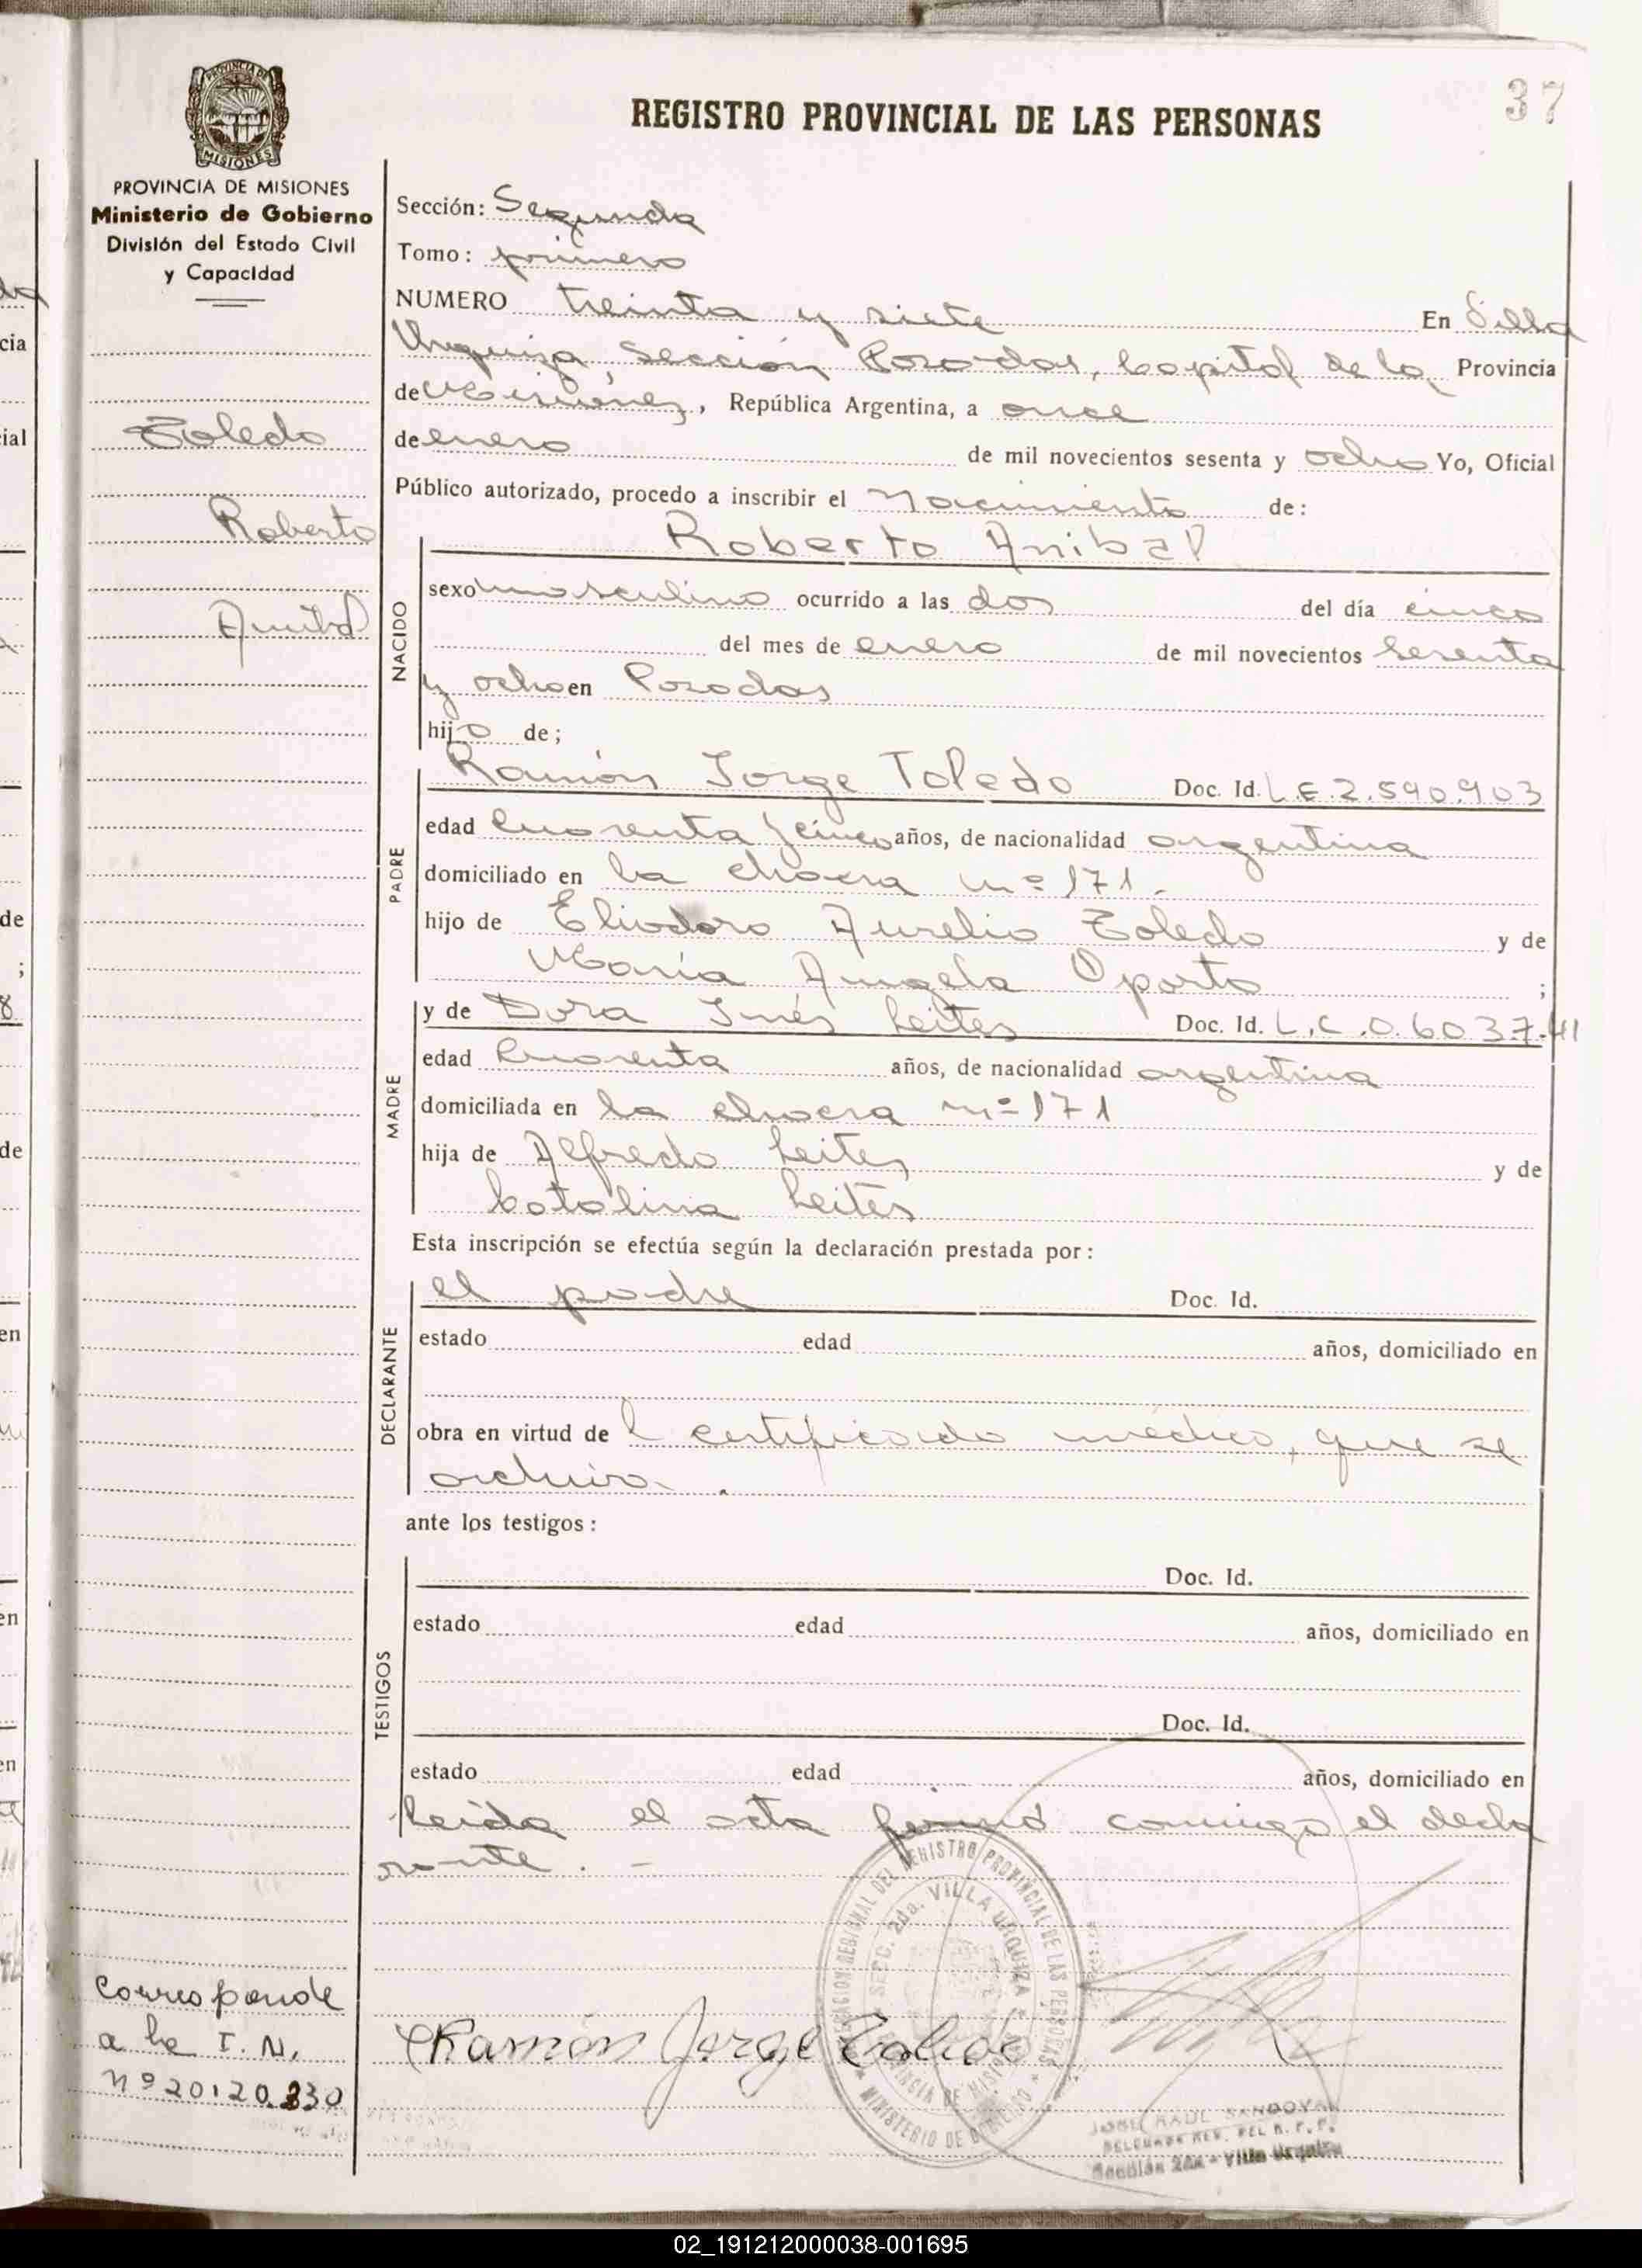 37
REGISTRO PROVINCIAL DE LAS PERSONAS
PROVINCIA DE MISIONES
MISIONES
PROVINCIA DE MISIONES
Ministerio de Gobierno
División del Estado Civil
y Capacidad
Toledo
Roberto
Anibal
Sección: Segunda
Tomo: primero
NUMERO treinta y siete En Villa
Urquiza, Sección Posadas, Capital de la Provincia
de Misiones, República Argentina, a once
de enero de mil novecientos sesenta y ocho Yo, Oficial
Público autorizado, procedo a inscribir el Nacimiento de:
Roberto Anibal
NACIDO
sexo masculino ocurrido a las dos del día cinco
del mes de enero de mil novecientos sesenta
y ocho en Posadas
hijo de;
Ramón Jorge Toledo Doc. Id. L.E.2.590.903
PADRE
edad Cuarenta y cinco años, de nacionalidad argentina
domiciliado en la chacra nº 171.
hijo de Eliodoro Aurelio Toledo y de
María Angela Oporto ;
MADRE
y de Dora Inés Leites Doc. Id. L.C.0.603.7.41
edad Cuarenta años, de nacionalidad argentina
domiciliada en la chacra nº 171
hija de Alfredo Leites y de
Catalina Leites
Esta inscripción se efectúa según la declaración prestada por:
DECLARANTE
el padre Doc. Id.
estado edad años, domiciliado en
obra en virtud de l certificado médico, que se
archiva.
ante los testigos:
TESTIGOS
Doc. Id.
estado edad años, domiciliado en
Doc. Id.
estado edad años, domiciliado en
Leída el acta firmó conmigo el decla
rante. -
REGIONAL DEL REGISTRO PROVINCIAL DE LAS PERSONAS
SECC. 2da. VILLA URQUIZA
PROVINCIA DE MISIONES
MINISTERIO DE GOBIERNO
Ramón Jorge Toledo
JOSE RAUL SANDOVAL
DELEGADO REG. DEL R. P. P.
Sección 2da - Villa Urquiza
Corresponde
a la I. N.
nº 20.120.330
02_191212000038-001695